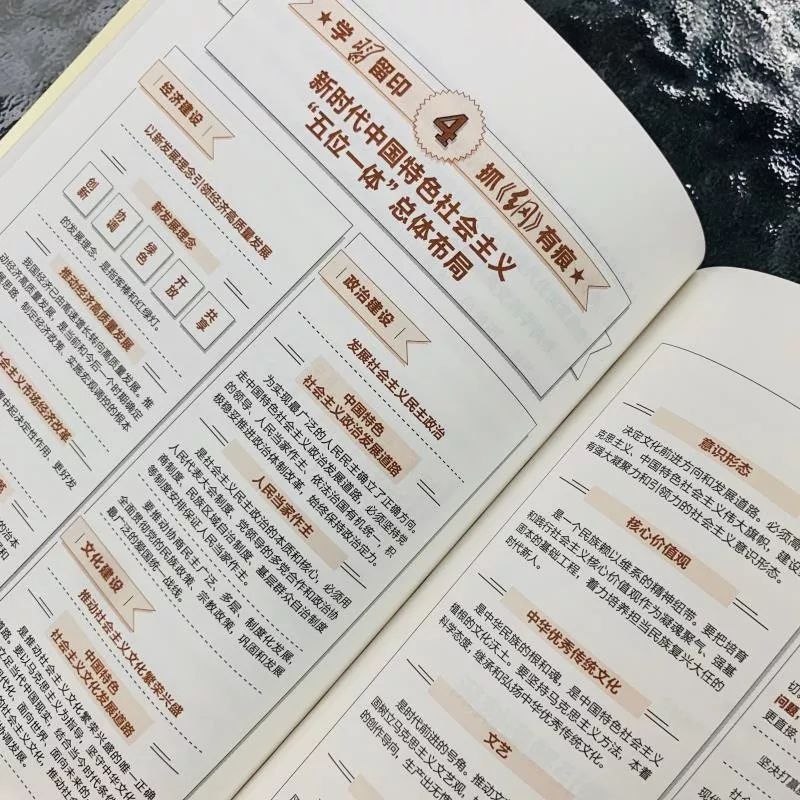 学习留印
4
抓《纲》有痕
新时代中国特色社会主义
“五位一体”总体布局
经济建设
以新发展理念引领经济高质量发展
新发展理念
创新
协调
绿色
开放
共享
的发展理念，是指挥棒和红绿灯。
推动经济高质量发展
我国经济已由高速增长转向高质量发展。推
动经济高质量发展，是当前和今后一个时期确定
展思路、制定经济政策、实施宏观调控的根本
社会主义市场经济改革
置中起决定性作用，更好发
政治建设
发展社会主义民主政治
中国特色
社会主义政治发展道路
为实现最广泛的人民民主确立了正确方向。
走中国特色社会主义政治发展道路，必须坚持党
的领导、人民当家作主、依法治国有机统一，积
极稳妥推进政治体制改革，始终保持政治定力。
人民当家作主
是社会主义民主政治的本质和核心，必须用
人民代表大会制度、党领导的多党合作和政治协
商制度、民族区域自治制度、基层群众自治制度
等制度安排保证人民当家作主。
要推动协商民主广泛、多层、制度化发展，
全面贯彻党的民族政策、宗教政策，巩固和发展
最广泛的爱国统一战线。
文化建设
推动社会主义文化繁荣兴盛
中国特色
社会主义文化发展道路
是推动社会主义文化繁荣兴盛的唯一正确
道路。要以马克思主义为指导，坚守中华文化
立足当代中国现实，结合当今时代条件
意识形态
决定文化前进方向和发展道路。必须高
克思主义、中国特色社会主义伟大旗帜，建设
有强大凝聚力和引领力的社会主义意识形态。
核心价值观
是一个民族赖以维系的精神纽带。要把培育
和践行社会主义核心价值观作为凝魂聚气、强基
固本的基础工程，着力培养担当民族复兴大任的
时代新人。
中华优秀传统文化
是中华民族的根和魂，是中国特色社会主义
植根的文化沃土。要坚持马克思主义方法，本着
科学态度，继承和弘扬中华优秀传统文化。
文艺
是时代前进的号角。推动文
固树立马克思主义文艺观，
的创作导向，生产出无愧
问题，
更直接、
坚决打赢